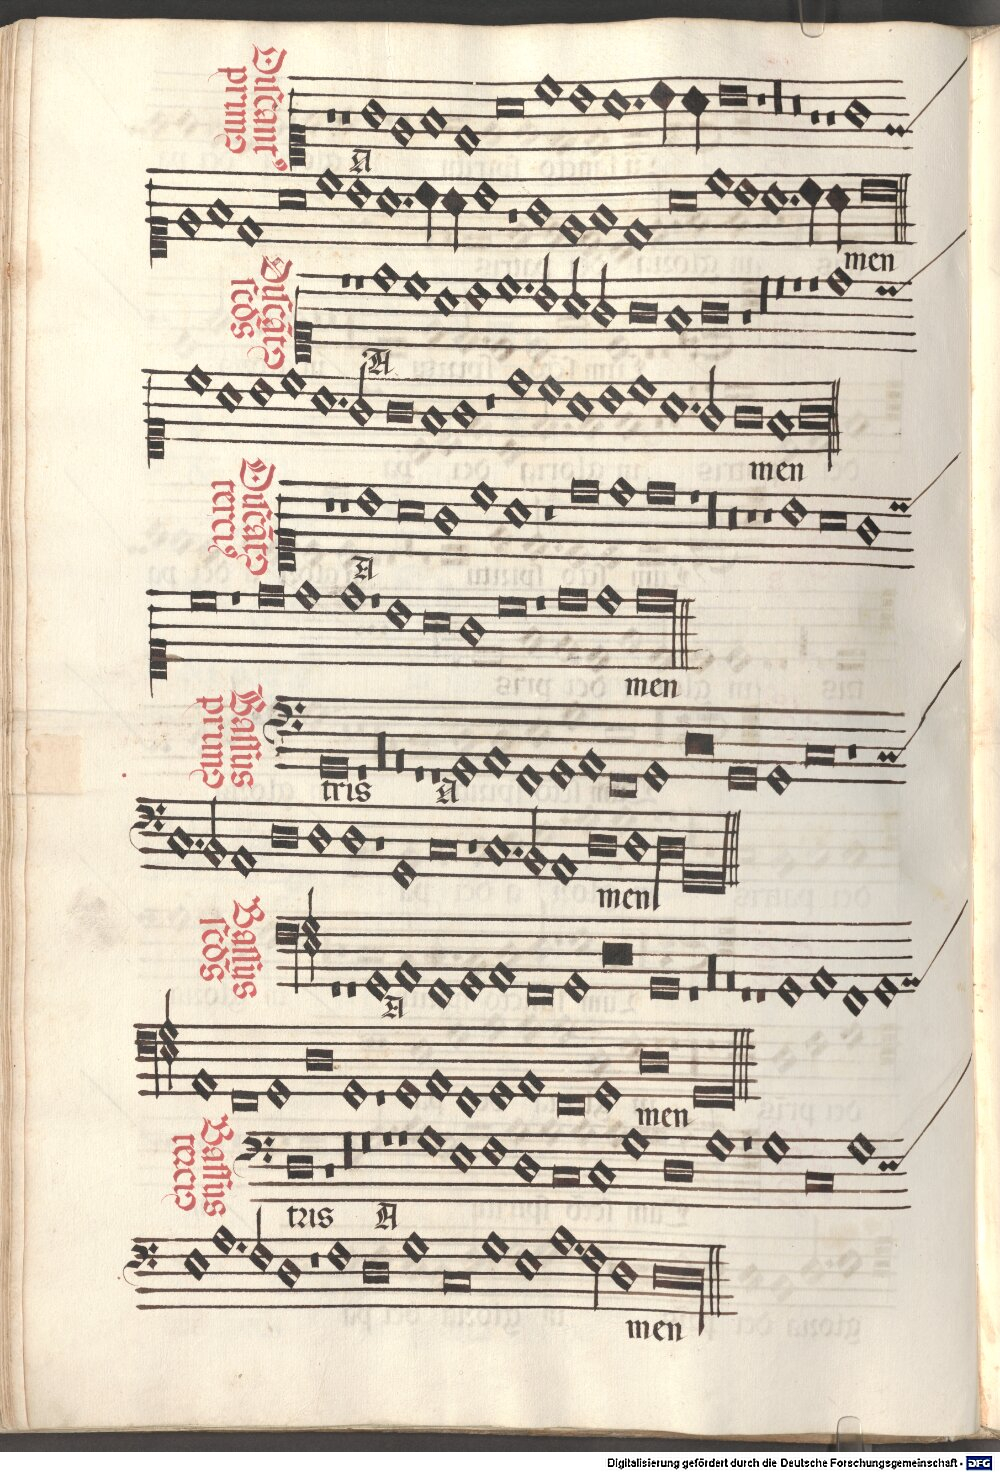 Discant⁹ primꝰ
A
men
Discāt⁹ scds
A
men
Discāt⁹ terci⁹
A
men
Bassus primꝰ
tris A
men
Bassus scds
A
men
Bassus terciꝰ
tris A
men
Digitalisierung gefördert durch die Deutsche Forschungsgemeinschaft - DFG